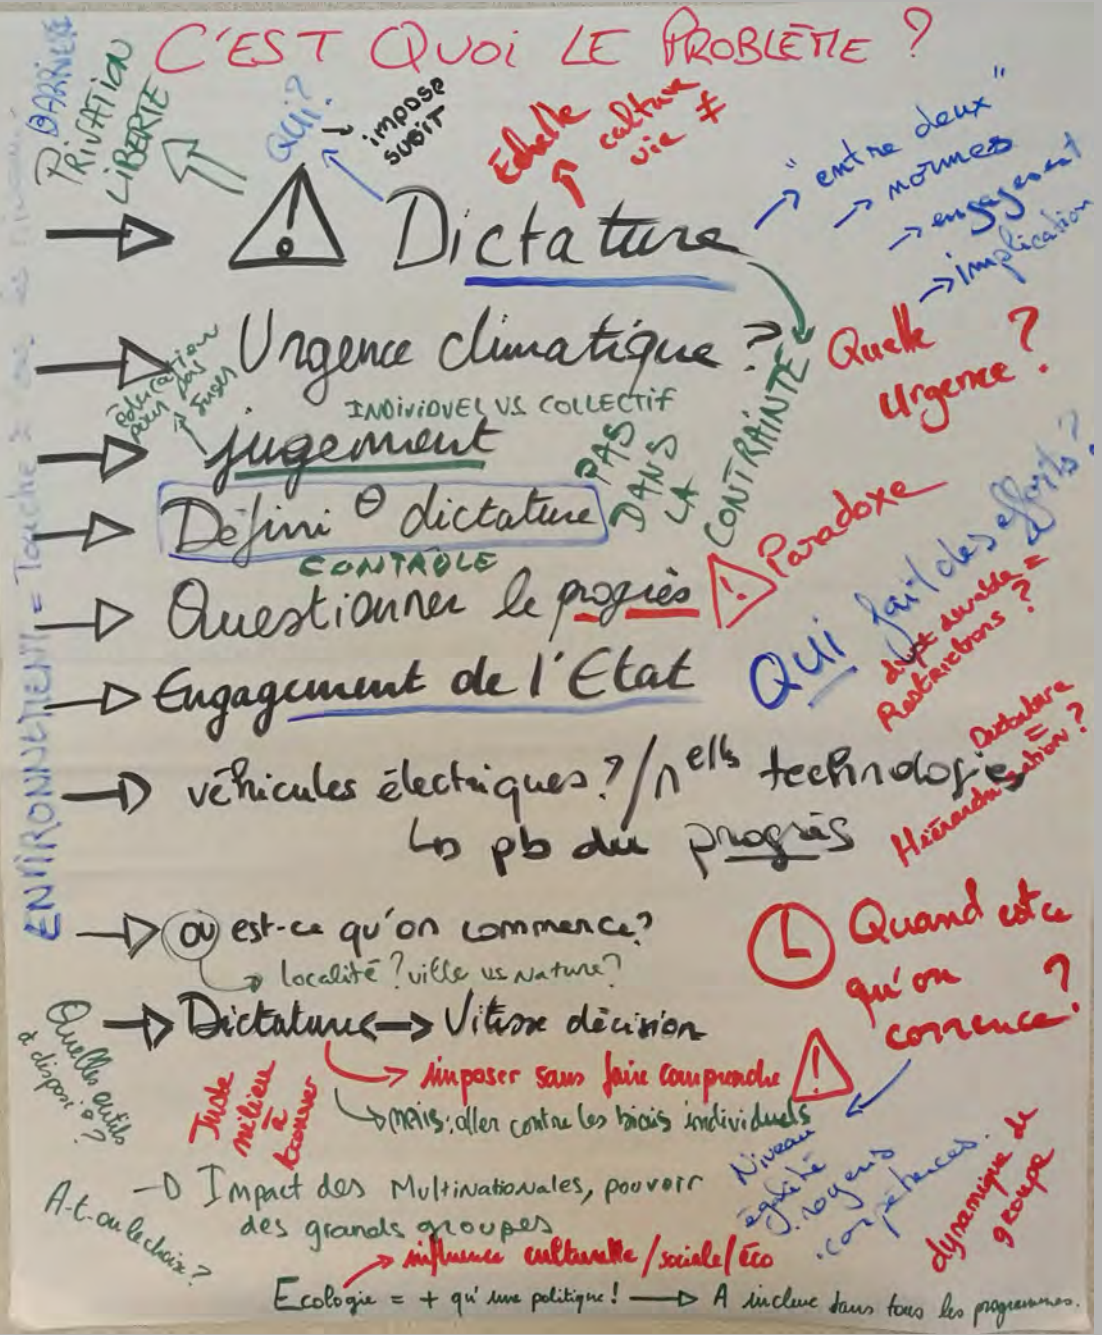 C'EST QUOI LE PROBLÈME ?
BARRIÈRE
PRIVATION
LIBERTÉ
QUI?
→ impose
subit
Echelle
culture
vie ≠
→ "entre deux"
→ normes
→ engagement
→ implication
→ ⚠ Dictature
→ Urgence climatique ?
Quelle
Urgence ?
éducation
pour pas
juger
INDIVIDUEL VS COLLECTIF
→ jugement
PAS
DANS
LA
CONTRAINTE
→ Défini θ dictature
CONTRÔLE
→ Questionner le progrès
⚠ Paradoxe
→ Engagement de l'Etat
QUI fait des efforts ?
dvpt durable =
Restrictions ?
→ véhicules électriques ? / nelles technologies
↳ pb du progrès
Dictature
=
Hiérarchisation ?
ENVIRONNEMENT = Touche
→ où est-ce qu'on commence ?
→ localité ? ville vs nature ?
Quand est ce
qu'on
commence ?
→ Dictature ↔ Vitesse décision
→ imposer sans faire comprendre ⚠
→ MAIS : aller contre les biais individuels
Quels outils
à disposi° ?
Juste
milieu
à
trouver
Niveau
égalité
. moyens
. compétences.
dynamique de
groupe
→ Impact des Multinationales, pouvoir
des grands groupes
A-t-on le choix ?
→ influence culturelle / sociale / éco
Ecologie = + qu'une politique ! → A inclure dans tous les programmes.